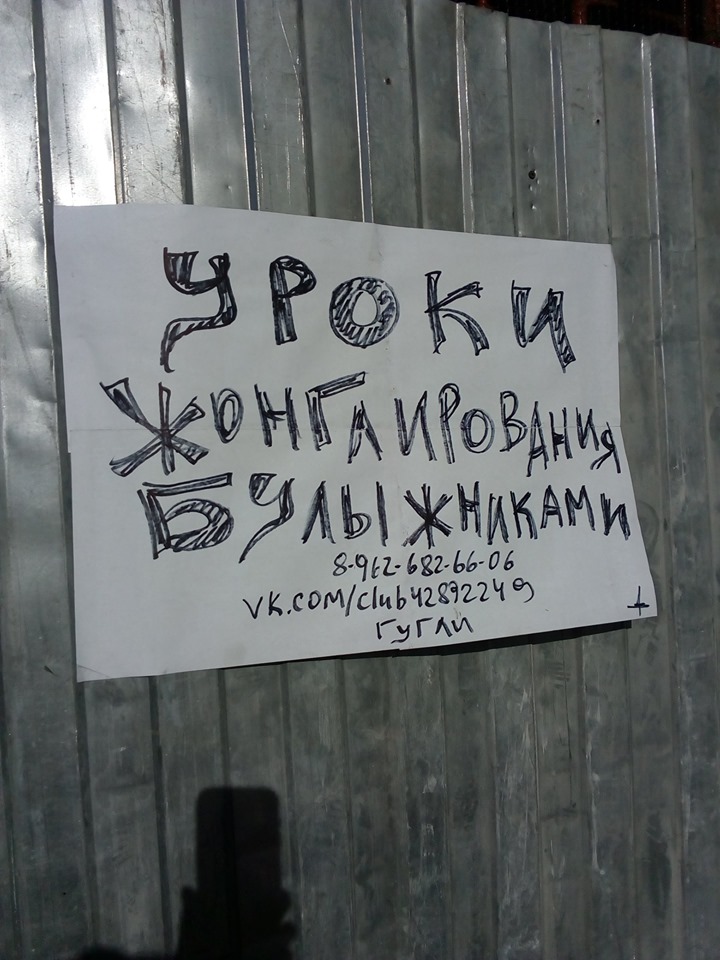 УРОКИ
ЖОНГЛИРОВАНИЯ
БУЛЫЖНИКАМИ
8-962-682-66-06
VK.COM/club42892249
ГУГЛИ